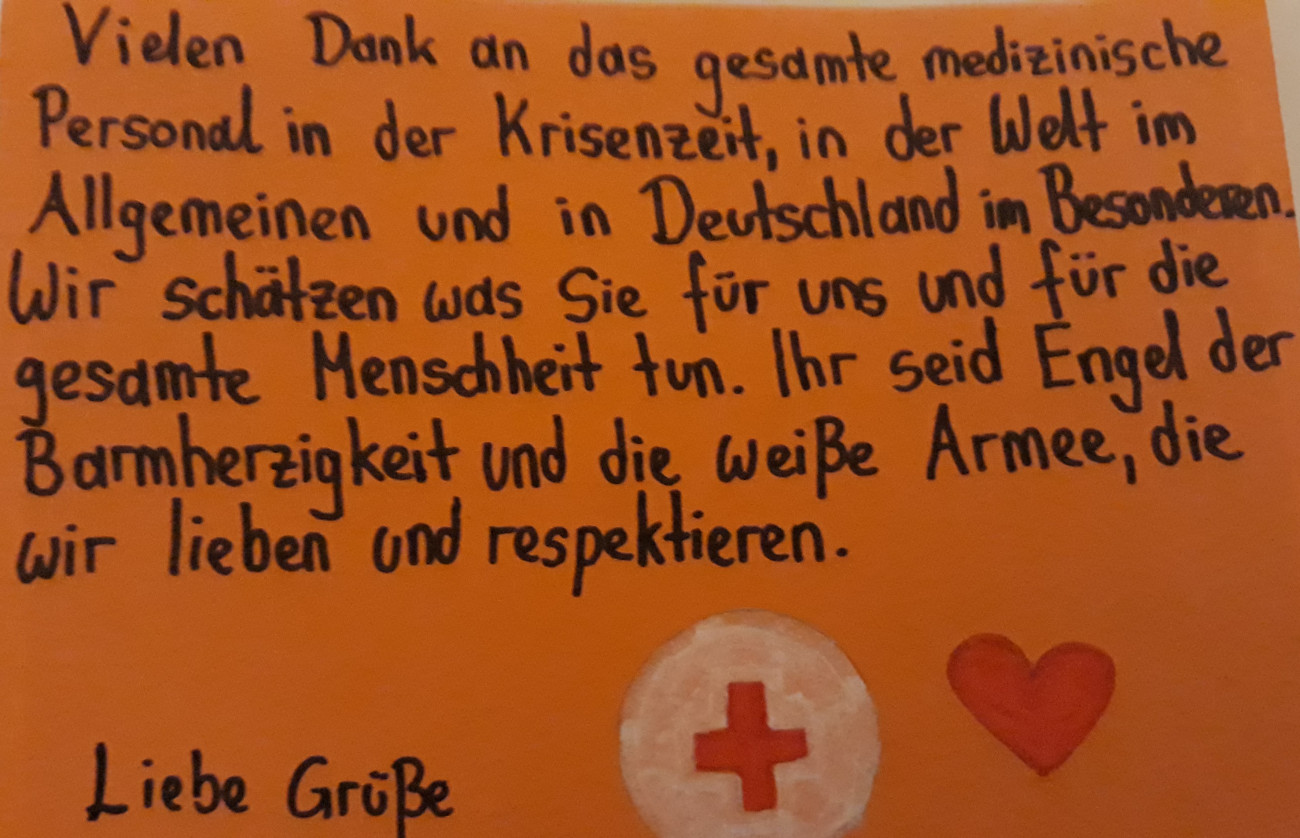 Vielen Dank an das gesamte medizinische
Personal in der Krisenzeit, in der Welt im
Allgemeinen und in Deutschland im Besonderen.
Wir schätzen was Sie für uns und für die
gesamte Menschheit tun. Ihr seid Engel der
Barmherzigkeit und die weiße Armee, die
wir lieben und respektieren.
Liebe Grüße